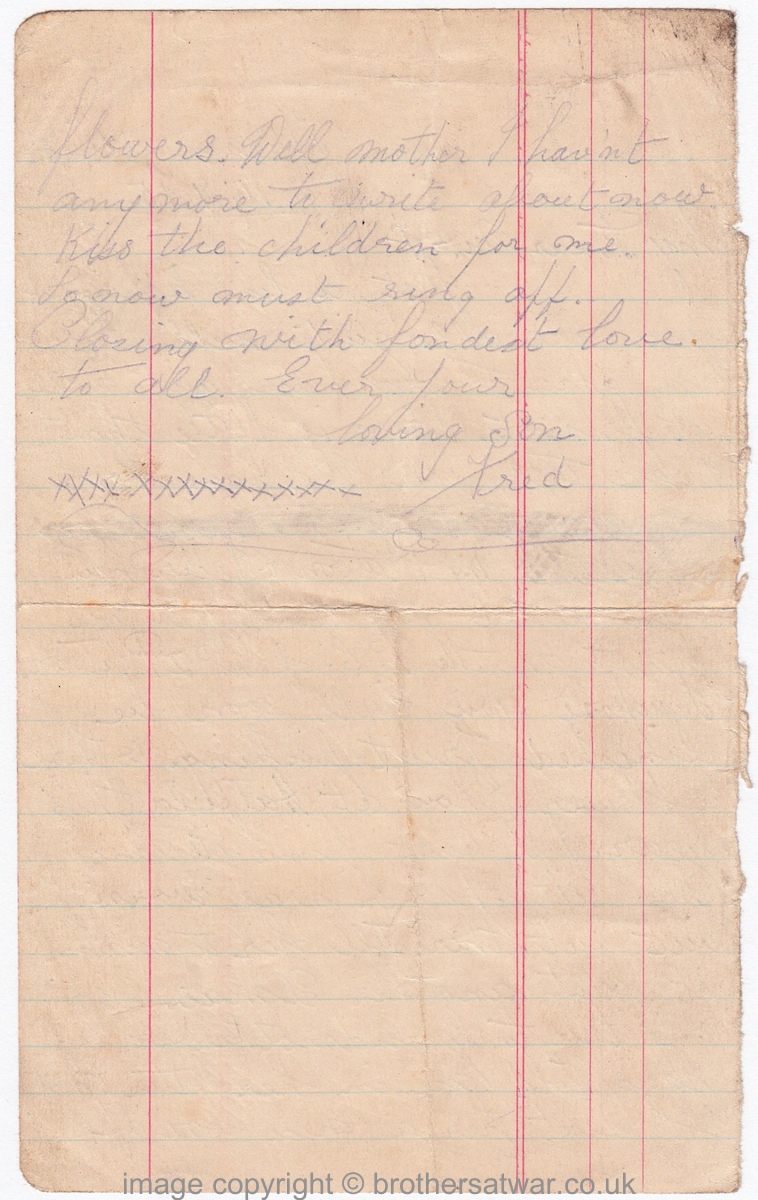 flowers. Well mother I hav'nt
anymore to write about now.
Kiss the children for me.
So now must ring off.
Closing with fondest love
to all. Ever your
loving Son
xxxx xxxxxxxxxxxxx Fred
image copyright © brothersatwar.co.uk